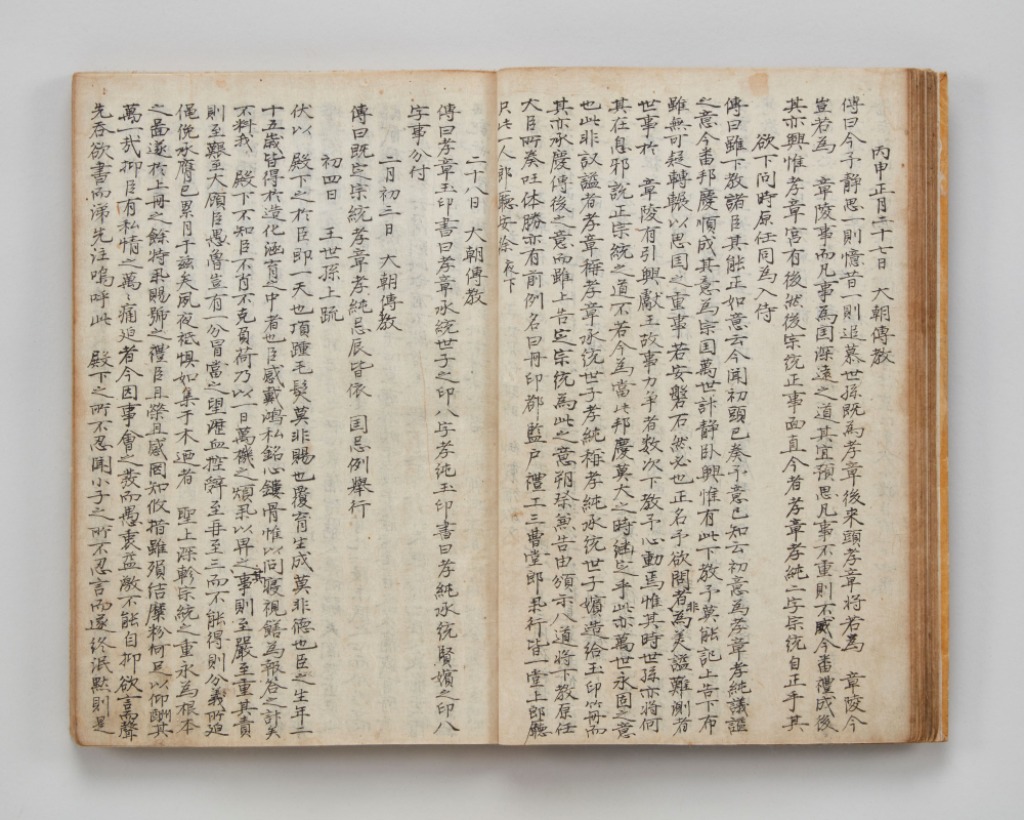 丙申正月二十七日 大朝傳敎
傳曰今予靜思一則憶昔一則追慕世孫旣爲孝章後來頭孝章將若爲 章陵今
豈若爲 章陵事而凡事爲国深遠之道其宜預思凡事不重則不威今番禮成後
其亦興惟孝章宮有後然後宗統正事面直今者孝章孝純二字宗統自正乎其
欲下問時原任同爲入侍
傳曰雖下敎諸臣其能正如意云今聞初頭已奏予意已知云初意爲孝章孝純議謚
之意今番邦慶順成其意爲宗国萬世計靜卧興惟有此下敎予莫能記上告下布
雖無可起轉輾以思国之重事若安磐石然必也正名予欲問者非爲美謚難測者
世事於 章陵有引興獻王故事力爭者数次下敎予心動焉惟其時世孫亦將何
其在息邪說正宗統之道不若今爲當此邦慶莫大之時乎此亦萬世永固之意
也此非議謚者孝章稱孝章承統世子孝純稱孝純承統世子嬪造給玉印竹冊而
其亦承慶傳後之意而雖上告宗統爲此之意朔祭兼告由頒示八道將下敎原任
大臣所奏旺体勝亦有前例名曰冊印都監戶禮工三曹堂郎擧行皆一堂上郎廳
只此一人郎廳安徐 夜下
二十八日 大朝傳敎
傳曰孝章玉印書曰孝章承統世子之印八字孝純玉印書曰孝純承統賢嬪之印八
字事分付
二月初三日 大朝傳敎
傳曰旣定宗統孝章孝純忌辰皆依 国忌例擧行
初四日 王世孫上疏
伏以 殿下之於臣卽一天也頂踵毛髮莫非賜也覆育生成莫非德也臣之生年二
十五歲皆得於造化涵育之中者也臣感戴鴻私銘心鏤骨惟以問寢視饍爲報答之計矣
不料我 殿下不知臣不肖不克負荷乃以一日萬機之煩畀之其事則至嚴至重其責
則至艱至大顧臣愚魯豈有一分冒當之望瀝血控辭至再至三而不能得則分義所迫
僶俛承膺已累月于玆矣夙夜祗懼如集于木迺者 聖上深軫宗統之重永爲根本
之啚遂於上冊之餘特采賜號之禮臣且榮且感罔知攸措雖殞結糜粉何足以仰酬其
萬一哉抑臣有私情之萬萬痛迫者今因事會之發而愚衷益激不能自抑欲言而聲
先呑欲書而涕先泣嗚呼此 殿下之所不忍聞小子之所不忍言而遂終泯默則是